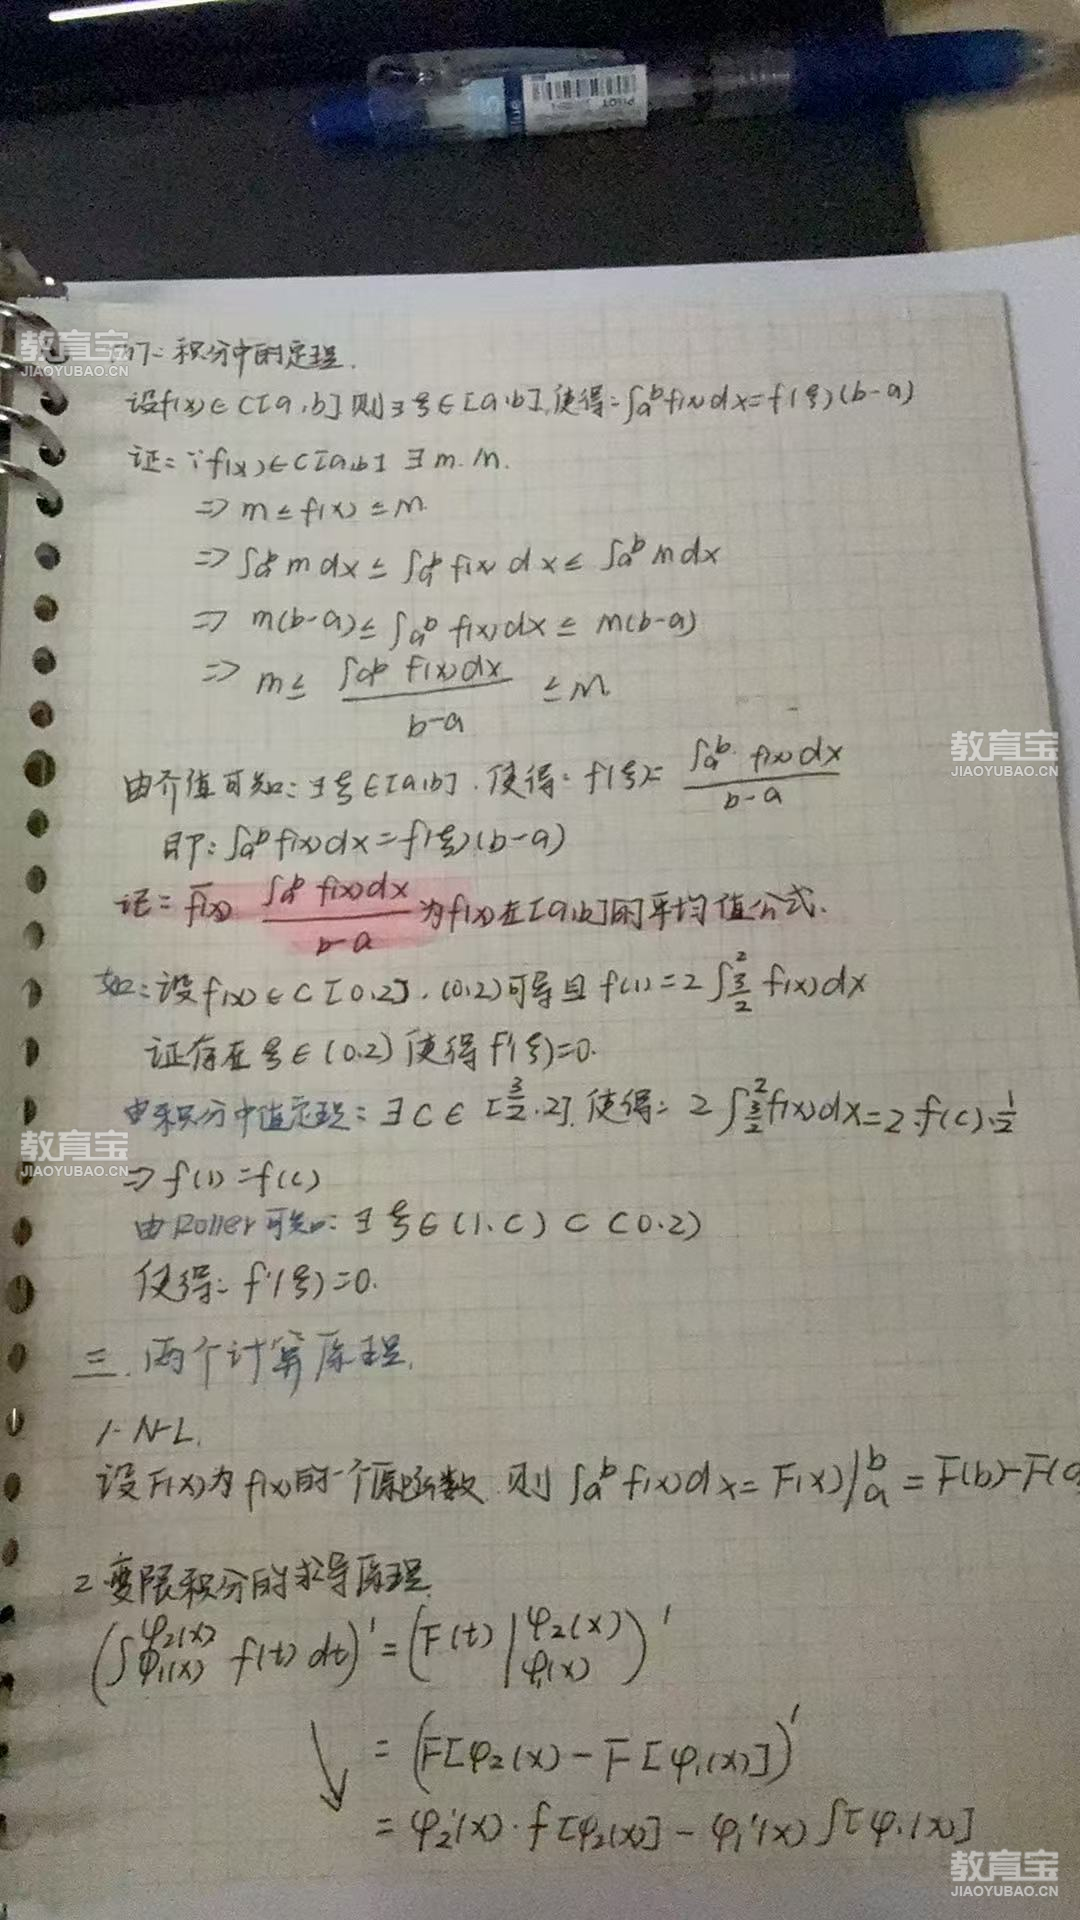 PILOT
教育宝
JIAOYUBAO.CN
积分中的定理.
设f(x)∈C[a,b] 则∃ξ∈[a,b],使得:∫ₐᵇf(x)dx=f(ξ)(b-a)
证:∵f(x)∈C[a,b] ∃m.M.
⇒ m≤f(x)≤M.
⇒ ∫ₐᵇ m dx ≤ ∫ₐᵇ f(x) dx ≤ ∫ₐᵇ M dx
⇒ m(b-a) ≤ ∫ₐᵇ f(x) dx ≤ M(b-a)
⇒ m ≤ ∫ₐᵇ f(x)dx / b-a ≤ M
教育宝
JIAOYUBAO.CN
由介值可知:∃ξ∈[a,b].使得:f(ξ)= ∫ₐᵇ f(x)dx / b-a
即:∫ₐᵇ f(x)dx=f(ξ)(b-a)
记: f̅(x) ∫ₐᵇ f(x)dx / b-a 为f(x)在[a,b]的平均值公式.
如:设f(x)∈C[0.2].(0.2)可导且 f(1)=2∫_{3/2}^{2} f(x)dx
证存在ξ∈(0.2)使得f'(ξ)=0.
由积分中值定理:∃C∈[3/2.2].使得: 2∫_{3/2}^{2}f(x)dx=2.f(c).1/2
教育宝
JIAOYUBAO.CN
⇒ f(1)=f(c)
由Roller可知:∃ξ∈(1.c)⊂(0.2)
使得: f'(ξ)=0.
三.两个计算原理.
1. N-L.
设F(x)为f(x)的一个原函数.则 ∫ₐᵇ f(x)dx=F(x)|ₐᵇ=F(b)-F(a
2 变限积分的求导原理.
(∫_{φ₁(x)}^{φ₂(x)} f(t) dt)'=(F(t)|_{φ₁(x)}^{φ₂(x)})'
=(F[φ₂(x)-F[φ₁(x)])'
=φ₂'(x)·f[φ₂(x)]-φ₁'(x)f[φ₁(x)]
教育宝
JIAOYUBAO.CN